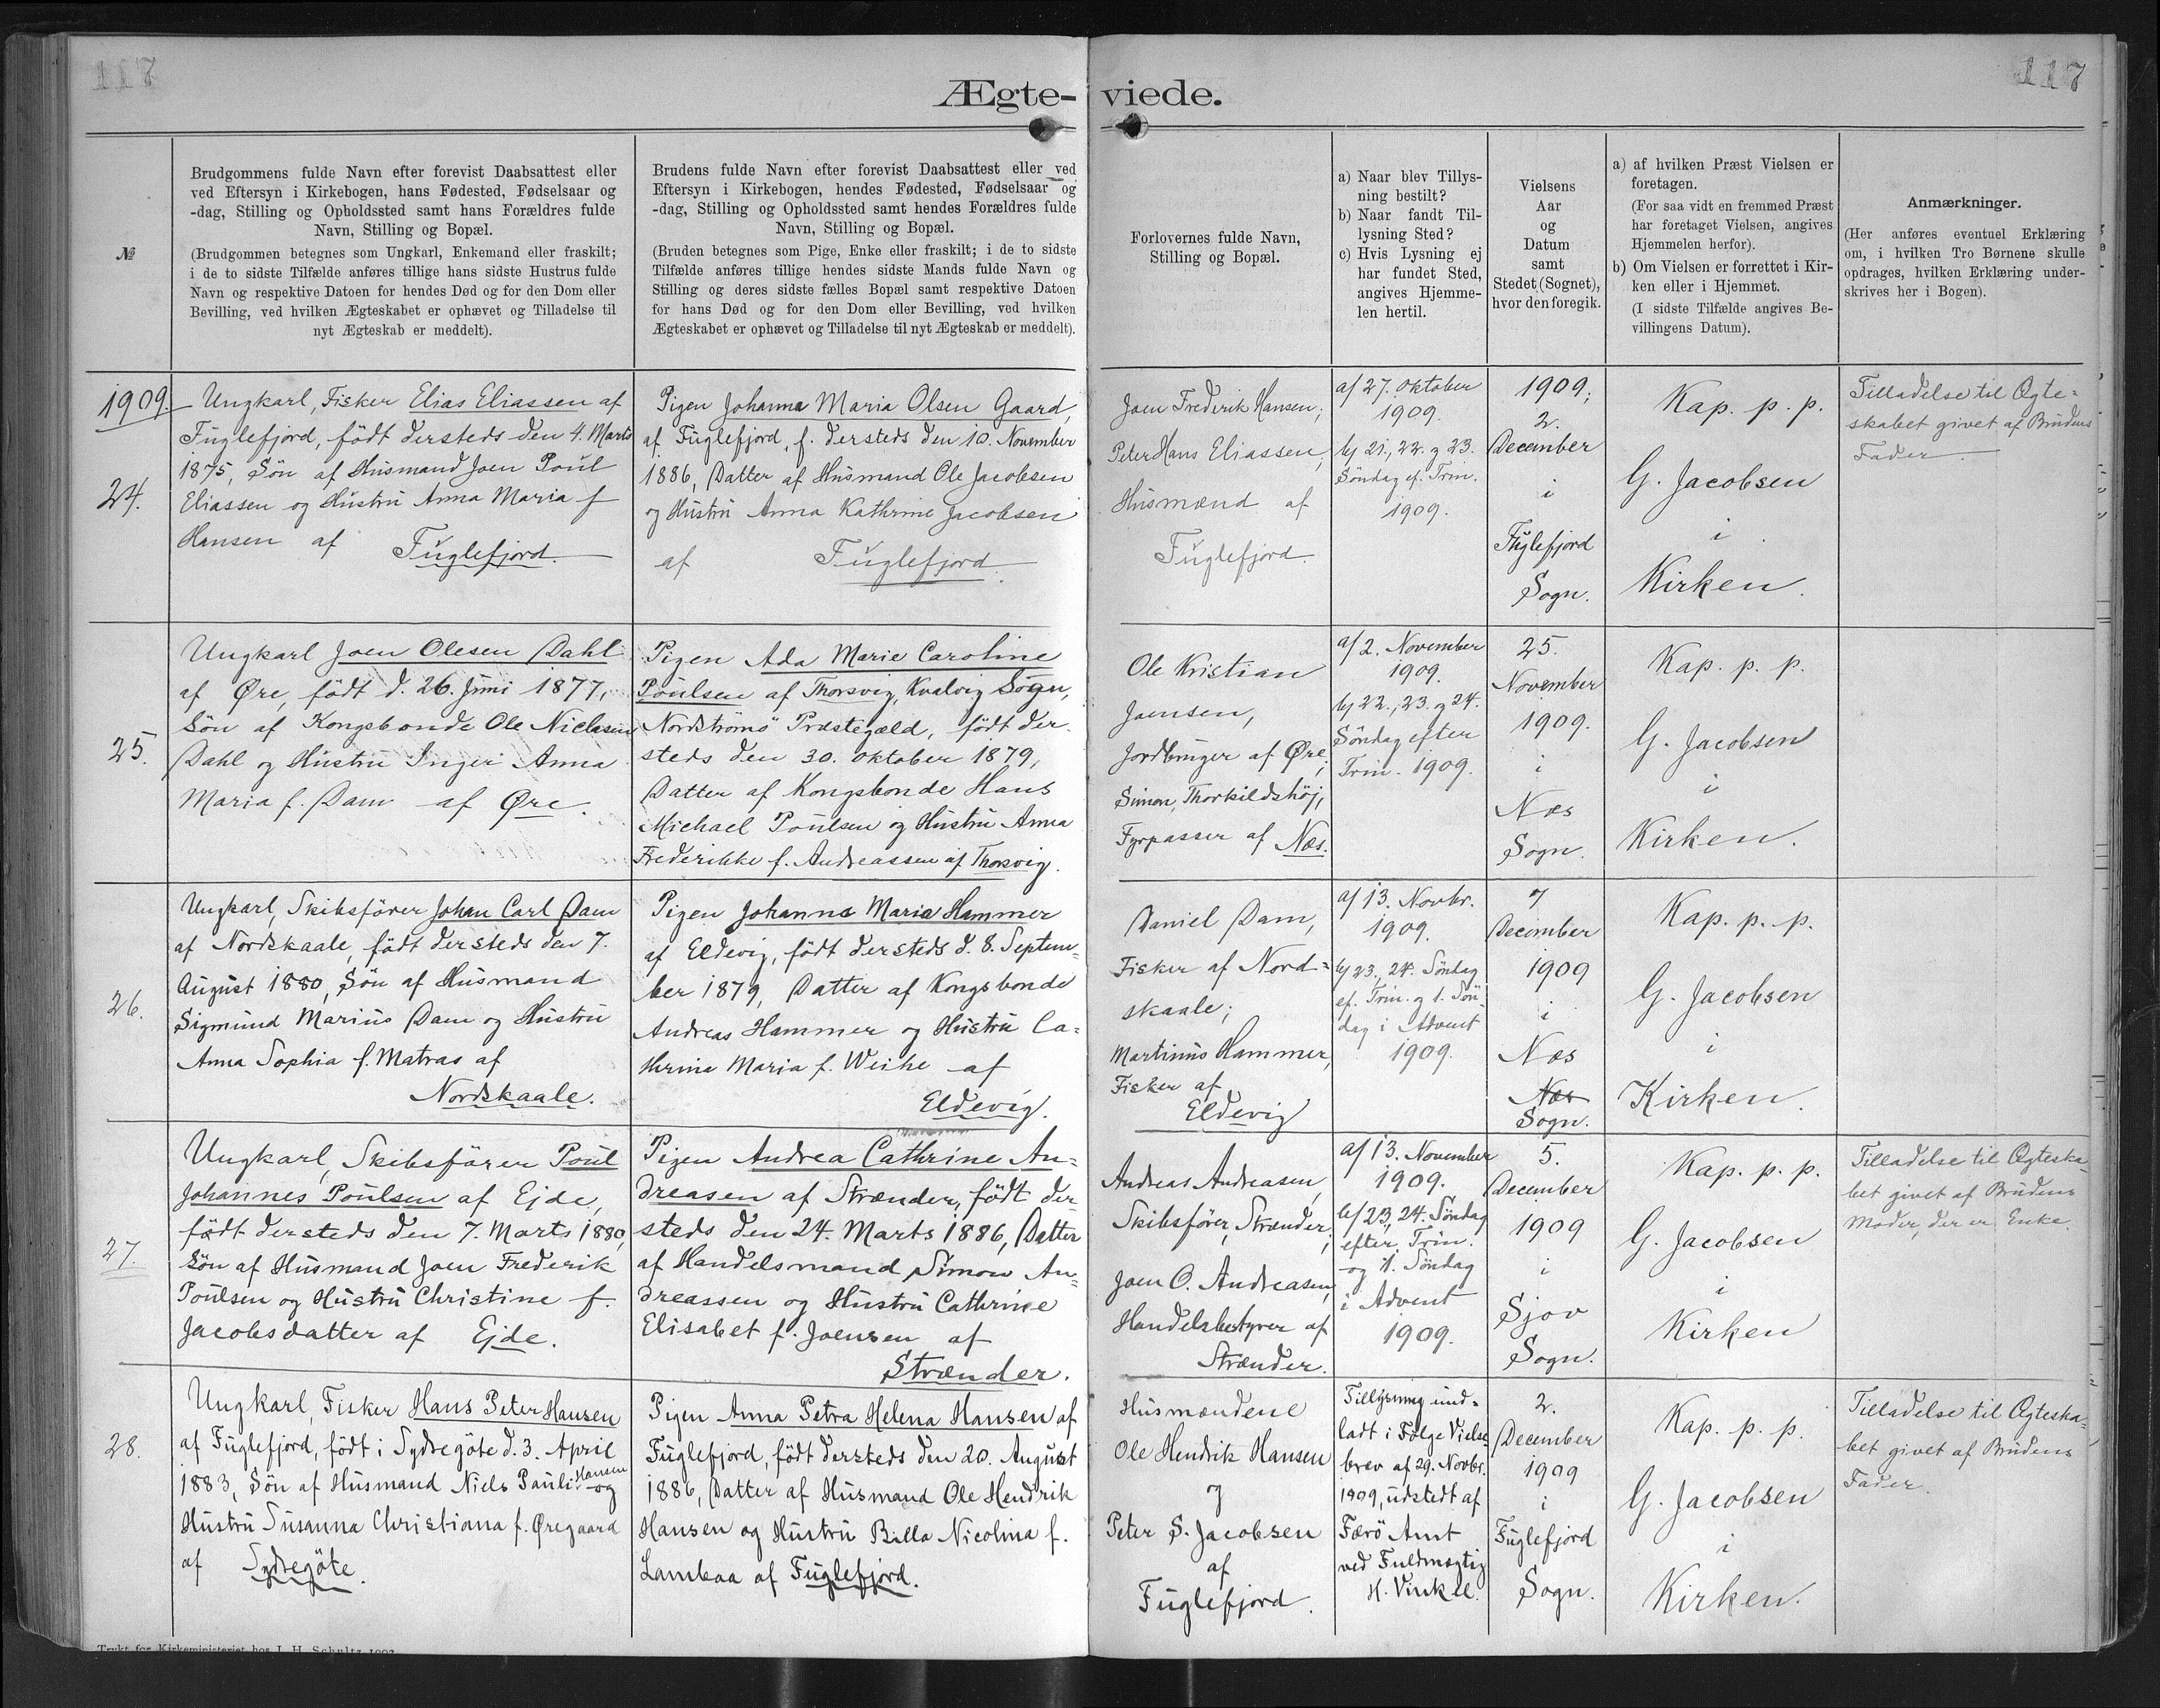 117
117
Ægte- viede.
№
Brudgommens fulde Navn efter forevist Daabsattest eller
ved Eftersyn i Kirkebogen, hans Fødested, Fødselsaar og
-dag, Stilling og Opholdssted samt hans Forældres fulde
Navn, Stilling og Bopæl.
(Brudgommen betegnes som Ungkarl, Enkemand eller fraskilt;
i de to sidste Tilfælde anføres tillige hans sidste Hustrus fulde
Navn og respektive Datoen for hendes Død og for den Dom eller
Bevilling, ved hvilken Ægteskabet er ophævet og Tilladelse til
nyt Ægteskab er meddelt).
Brudens fulde Navn efter forevist Daabsattest eller ved
Eftersyn i Kirkebogen, hendes Fødested, Fødselsaar og
-dag, Stilling og Opholdssted samt hendes Forældres fulde
Navn, Stilling og Bopæl.
(Bruden betegnes som Pige, Enke eller fraskilt; i de to sidste
Tilfælde anføres tillige hendes sidste Mands fulde Navn og
Stilling og deres sidste fælles Bopæl samt respektive Datoen
for hans Død og for den Dom eller Bevilling, ved hvilken
Ægteskabet er ophævet og Tilladelse til nyt Ægteskab er meddelt).
Forlovernes fulde Navn,
Stilling og Bopæl.
a) Naar blev Tillys-
ning bestilt?
b) Naar fandt Til-
lysning Sted?
c) Hvis Lysning ej
har fundet Sted,
angives Hjemme-
len hertil.
Vielsens
Aar
og
Datum
samt
Stedet (Sognet),
hvor den foregik.
a) af hvilken Præst Vielsen er
foretagen.
(For saa vidt en fremmed Præst
har foretaget Vielsen, angives
Hjemmelen herfor).
b) Om Vielsen er forrettet i Kir-
ken eller i Hjemmet.
(I sidste Tilfælde angives Be-
villingens Datum).
Anmærkninger.
(Her anføres eventuel Erklæring
om, i hvilken Tro Børnene skulle
opdrages, hvilken Erklæring under-
skrives her i Bogen).
1909.
24.
Ungkarl, Fisker Elias Eliassen af
Fuglefjord, født dersteds den 4. Marts
1875, Søn af Husmand Joen Poul
Eliassen og Hustru Anna Maria f
Hansen af Fuglefjord.
Pigen Johanna Maria Olsen Gaard,
af Fuglefjord, f. dersteds den 10. November
1886, Datter af Husmand Ole Jacobsen
og Hustru Anna Kathrine Jacobsen
af Fuglefjord.
Joen Frederik Hansen;
Peter Hans Eliassen,
Husmænd af
Fuglefjord.
a/ 27. Oktober
1909.
b/ 21., 22. og 23.
Søndag ef. Trin.
1909.
1909;
2.
December
i
Fuglefjord
Sogn.
Kap. p. p.
G. Jacobsen
i
Kirken.
Tilladelse til Ægte-
skabet givet af Brudens
Fader.
25.
Ungkarl Joen Olesen Dahl
af Øre, født d. 26. Juni 1877,
Søn af Kongsbonde Ole Niclasen
Dahl og Hustru Inger Anna
Maria f. Dam af Øre.
Pigen Ada Marie Caroline
Poulsen af Thorsvig, Kvalvig Sogn,
Nordstrømø Præstegæld, født der-
steds den 30. Oktober 1879,
Datter af Kongsbonde Hans
Michael Poulsen og Hustru Anna
Frederikke f. Andreassen af Thorsvig.
Ole Kristian
Joensen,
Jordbruger af Øre;
Simon, Thorkildshøj,
Fyrpasser af Næs.
a/ 2. November
1909.
b/ 22., 23. og 24.
Søndag efter
Trin. 1909.
25.
November
1909.
i
Næs
Sogn.
Kap. p. p.
G. Jacobsen
i
Kirken.
26.
Ungkarl, Skibsfører Johan Carl Dam
af Nordskaale, født dersteds den 7.
August 1880, Søn af Husmand
Sigmund Marius Dam og Hustru
Anna Sophia f. Matras af
Nordskaale.
Pigen Johanna Maria Hammer
af Eldevig, født dersteds d. 8. Septem-
ber 1879, Datter af Kongsbonde
Andreas Hammer og Hustru Ca-
thrina Maria f. Weihe af
Eldevig.
Daniel Dam,
Fisker af Nord-
skaale;
Martinus Hammer,
Fisker af
Eldevig
a/ 13. Novbr.
1909.
b/ 23., 24. Søndag
ef. Trin. og 1. Søn-
dag i Advent
1909.
7
December
1909
i
Næs
Næs
Sogn.
Kap. p. p.
G. Jacobsen
i
Kirken.
27.
Ungkarl, Skibsfører Poul
Johannes Poulsen af Ejde,
født dersteds den 7. Marts 1880,
Søn af Husmand Joen Frederik
Poulsen og Hustru Christine f.
Jacobsdatter af Ejde.
Pigen Andrea Cathrine An-
dreasen af Strænder, født der-
steds den 24. Marts 1886, Datter
af Handelsmand Simon An-
dreassen og Hustru Cathrine
Elisabet f. Joensen af
Strænder.
Andreas Andreasen,
Skibsfører, Strænder;
Joen O. Andreasen,
Handelsbestyrer af
Strænder.
a/ 13. November
1909.
b/ 23, 24. Søndag
efter Trin.
og 1. Søndag
i Advent
1909.
5.
December
1909
i
Sjov
Sogn.
Kap. p. p.
G. Jacobsen
i
Kirken
Tilladelse til Ægteska-
bet givet af Brudens
Moder, der er Enke.
28.
Ungkarl, Fisker Hans Peter Hansen
af Fuglefjord, født i Sydregøte d. 3. April
1883, Søn af Husmand Niels Pauli Hansen og
Hustru Susanna Christiana f. Øregaard
af Sydregøte.
Pigen Anna Petra Helena Hansen af
Fuglefjord, født dersteds den 20. August
1886, Datter af Husmand Ole Hendrik
Hansen og Hustru Billa Nicolina f.
Lambaa af Fuglefjord.
Husmændene
Ole Hendrik Hansen
og
Peter S. Jacobsen
af
Fuglefjord.
Tillysning und-
ladt i Følge Vielse-
brev af 29. Novbr.
1909, udstedt af
Færø Amt
ved Fuldmægtig
H. Vinkel.
2.
December
1909
i
Fuglefjord
Sogn.
Kap. p. p.
G. Jacobsen
i
Kirken.
Tilladelse til Ægteska-
bet givet af Brudens
Fader.
Trykt for Kirkeministeriet hos J. H. Schultz